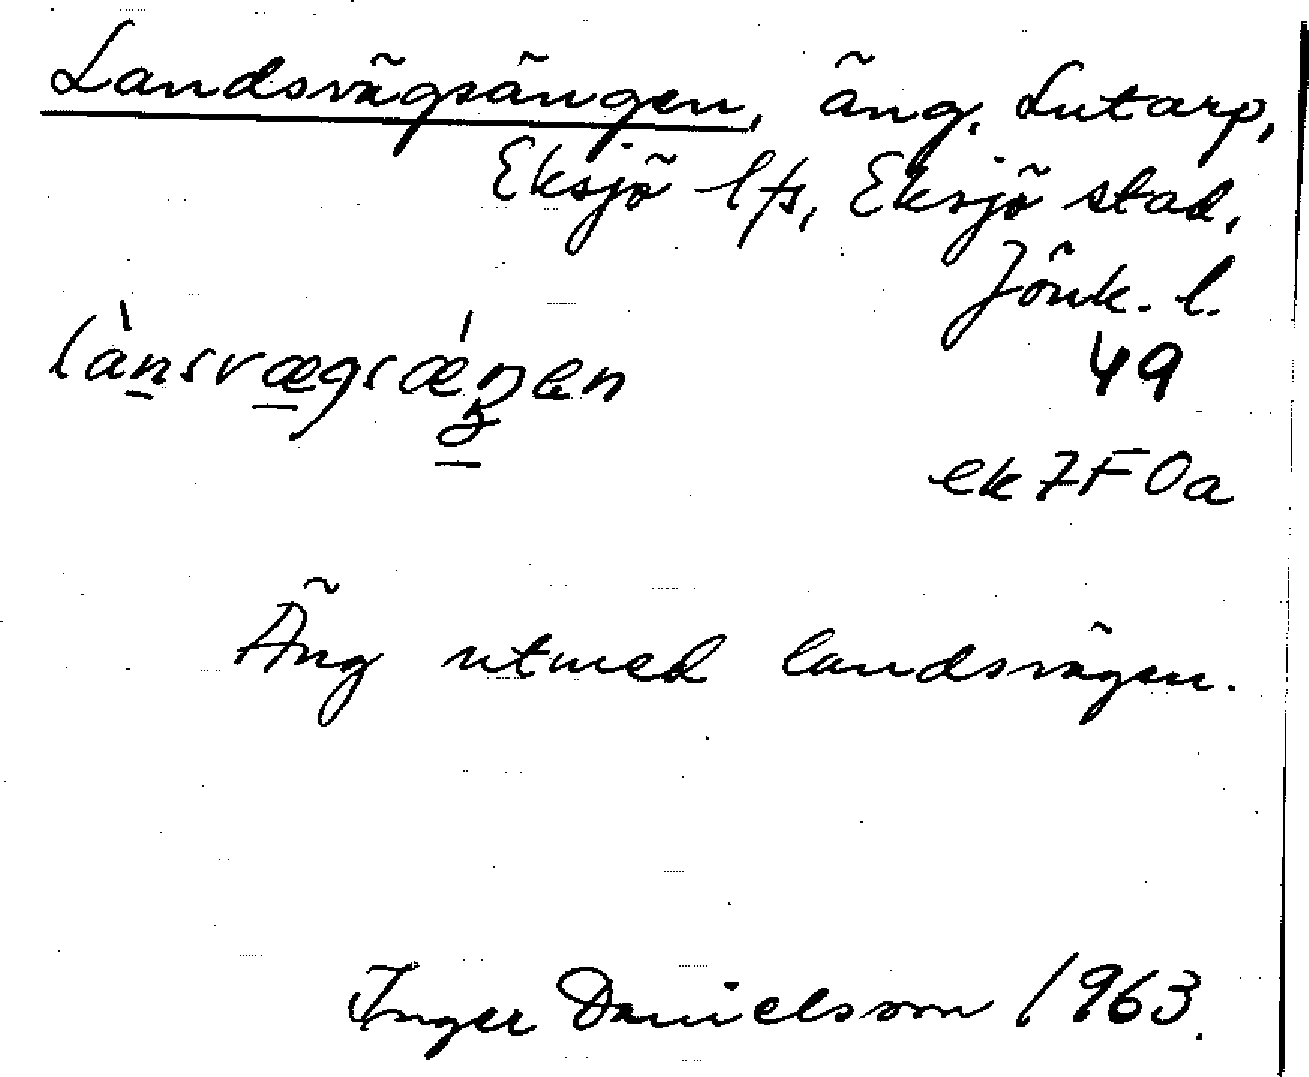 Landsvägsängen, äng, Lutarp,
Eksjö lfs, Eksjö stad,
Jönk. l.
lànsvægsǽŋen
49
ek 7F0a
Äng utmed landsvägen.
Inger Danielsson 1963.